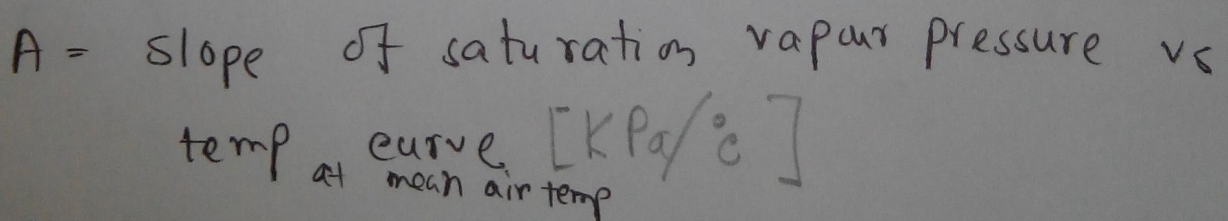 A = slope of saturation vapour pressure vs
temp curve [KPa/°c]
at mean air temp